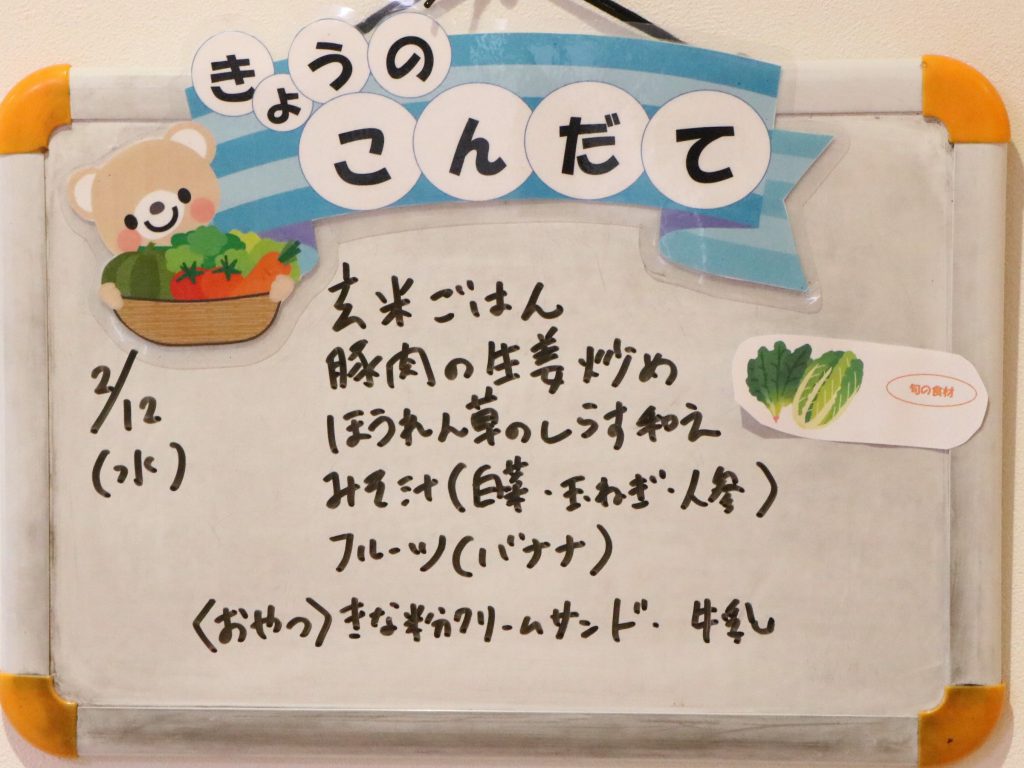 きょうの
こんだて
2/12
(水)
玄米ごはん
豚肉の生姜炒め
ほうれん草のしらす和え
みそ汁(白菜・玉ねぎ・人参)
フルーツ(バナナ)
〈おやつ〉きな粉クリームサンド・牛乳
旬の食材